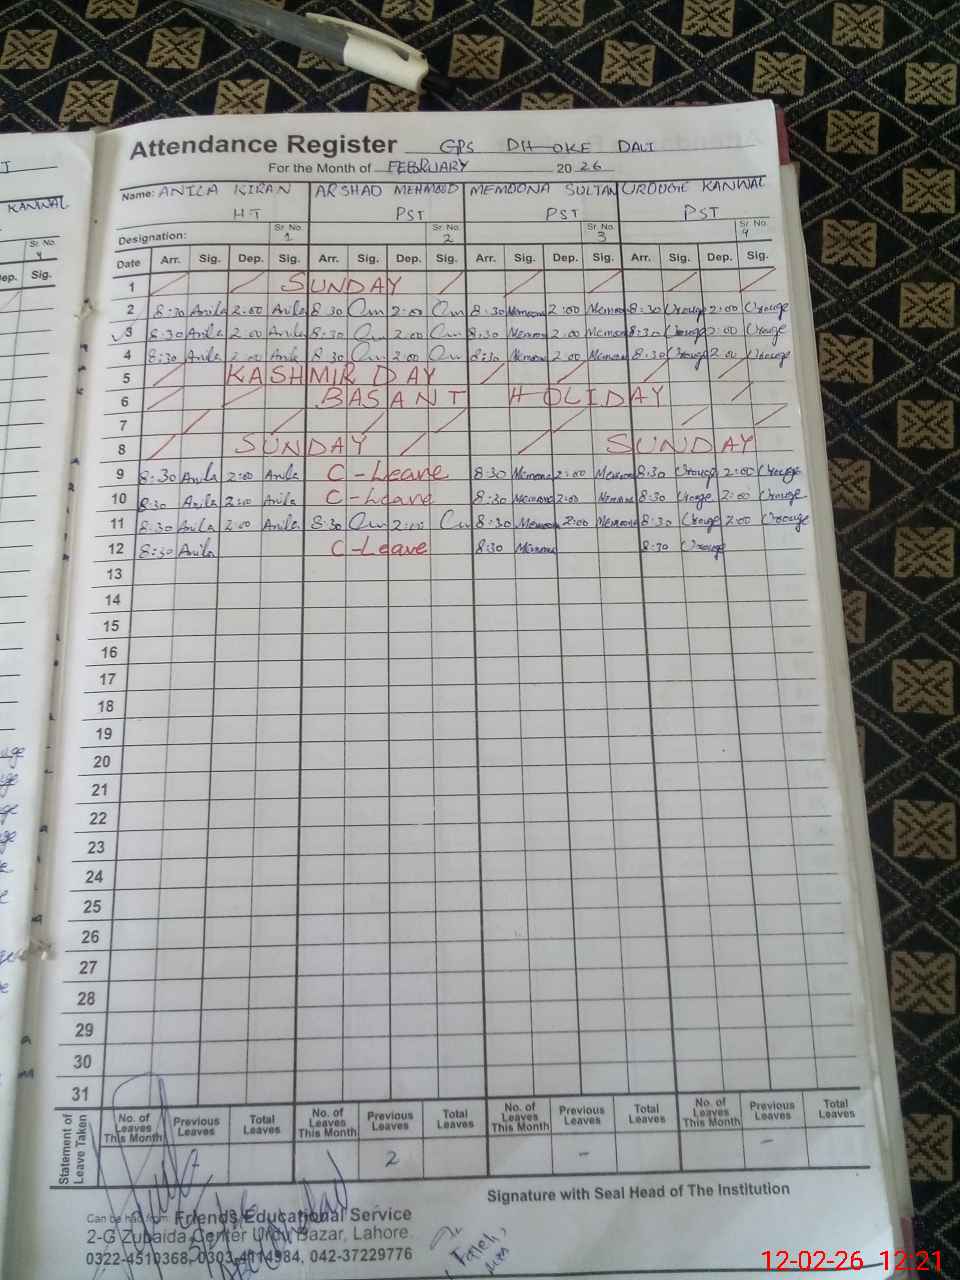 Attendance Register GPS DHOKE DALI
For the Month of FEBRUARY 2026
Name: ANILA KIRAN ARSHAD MEHMOOD MEMOONA SULTAN UROUGE KANWAL
HT PST PST PST
Designation: Sr. No. 1 Sr. No. 2 Sr. No. 3 Sr. No. 4
Date Arr. Sig. Dep. Sig. Arr. Sig. Dep. Sig. Arr. Sig. Dep. Sig. Arr. Sig. Dep. Sig.
1 SUNDAY
2 8:30 Anila 2:00 Anila 8 30 2:00 8:30 Memoona 2:00 Memoona 8:30 Urouge 2:00 Urouge
3 8:30 Anila 2:00 Anila 8:30 2:00 8:30 Memoona 2:00 Memoona 8:30 Urouge 2:00 Urouge
4 8:30 Anila 2:00 Anila 8 30 2:00 8:30 Memoona 2:00 Memoona 8:30 Urouge 2:00 Urouge
5 KASHMIR DAY
6 BASANT HOLIDAY
7
8 SUNDAY SUNDAY
9 8:30 Anila 2:00 Anila C-Leave 8:30 Memoona 2:00 Memoona 8:30 Urouge 2:00 Urouge
10 8:30 Anila 2:00 Anila C-Leave 8:30 Memoona 2:00 Memoona 8:30 Urouge 2:00 Urouge
11 8:30 Anila 2:00 Anila 8:30 2:00 8:30 Memoona 2:00 Memoona 8:30 Urouge 2:00 Urouge
12 8:30 Anila C-Leave 8:30 Memoona 8:30 Urouge
13
14
15
16
17
18
19
20
21
22
23
24
25
26
27
28
29
30
31
Statement of Leave Taken
No. of Leaves This Month Previous Leaves Total Leaves No. of Leaves This Month Previous Leaves Total Leaves No. of Leaves This Month Previous Leaves Total Leaves No. of Leaves This Month Previous Leaves Total Leaves
2 - -
Signature with Seal Head of The Institution
Can be had from: Friends Educational Service
2-G Zubaida Center Urdu Bazar, Lahore.
0322-4510368, 0303-4114984, 042-37229776
12-02-26 12:21
KANWAL
Sr. No.
4
Dep. Sig.